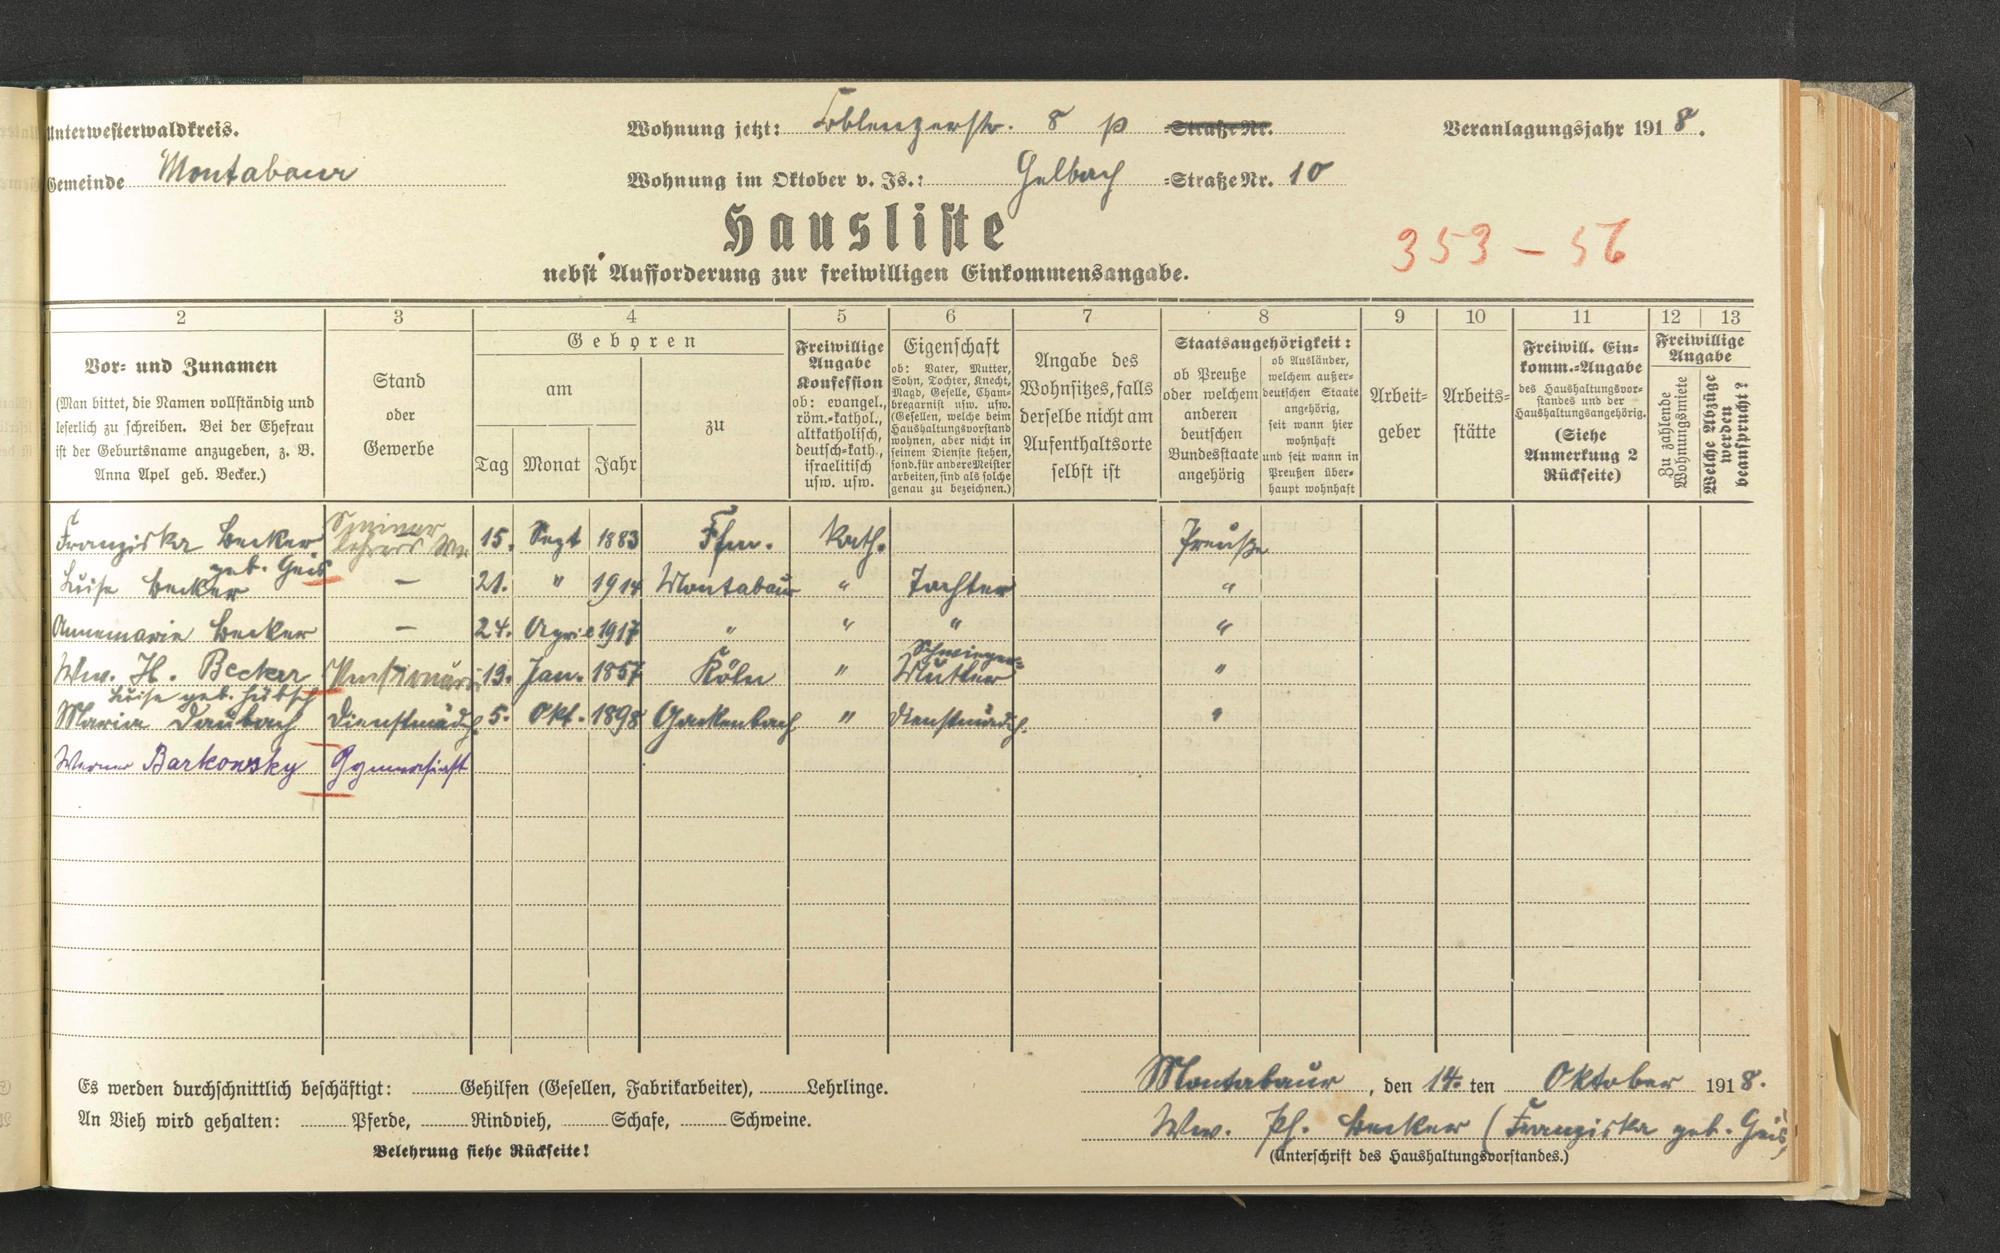 Unterwesterwaldkreis.
Wohnung jetzt: Coblenzerstr. 8 p =Straße Nr.
Veranlagungsjahr 1918.
Gemeinde Montabaur
Wohnung im Oktober v. Js.: Gelbach =Straße Nr. 10
Hausliste
353-56
nebst Aufforderung zur freiwilligen Einkommensangabe.
2 3 4 5 6 7 8 9 10 11 12 13
Vor- und Zunamen
(Man bittet, die Namen vollständig und
leserlich zu schreiben. Bei der Ehefrau
ist der Geburtsname anzugeben, z. B.
Anna Apel geb. Becker.)
Stand
oder
Gewerbe
Geboren
am
Tag Monat Jahr
zu
Freiwillige
Angabe
Konfession
ob: evangel.,
röm.-kathol.,
altkatholisch,
deutsch-kath.,
israelitisch
usw. usw.
Eigenschaft
ob: Vater, Mutter,
Sohn, Tochter, Knecht,
Magd, Geselle, Cham-
bregarnist usw. usw.
(Gesellen, welche beim
Haushaltungsvorstand
wohnen, aber nicht in
seinem Dienste stehen,
sond. für andere Meister
arbeiten, sind als solche
genau zu bezeichnen.)
Angabe des
Wohnsitzes, falls
derselbe nicht am
Aufenthaltsorte
selbst ist
Staatsangehörigkeit:
ob Preuße
oder welchem
anderen
deutschen
Bundesstaate
angehörig
ob Ausländer,
welchem außer-
deutschen Staate
angehörig,
seit wann hier
wohnhaft
und seit wann in
Preußen über-
haupt wohnhaft
Arbeit-
geber
Arbeits-
stätte
Freiwill. Ein-
komm.-Angabe
des Haushaltungsvor-
standes und der
Haushaltungsangehörig.
(Siehe
Anmerkung 2
Rückseite)
Freiwillige
Angabe
Zu zahlende
Wohnungsmiete
Welche Abzüge
werden
beansprucht?
Franziska Becker Seminar
lehrers Ww 15. Sept 1883 Ffm. kath. Preuße
geb. Geis
Luise Becker — 21. " 1914 Montabaur " Tochter "
Annemarie Becker — 24. April 1917 " " " "
Ww. H. Becker Pensionärin 19. Jan. 1857 Köln " Schwieger=
Mutter "
Luise geb. Hübsch
Maria Daubach Dienstmädch. 5. Okt. 1898 Gackenbach " Dienstmädch. "
Werner Barkowsky Gymnasiast
Es werden durchschnittlich beschäftigt: Gehilfen (Gesellen, Fabrikarbeiter), Lehrlinge.
An Vieh wird gehalten: Pferde, Rindvieh, Schafe, Schweine.
Belehrung siehe Rückseite!
Montabaur, den 14. ten Oktober 1918.
Ww. Ph. Becker (Franziska geb. Geis)
(Unterschrift des Haushaltungsvorstandes.)